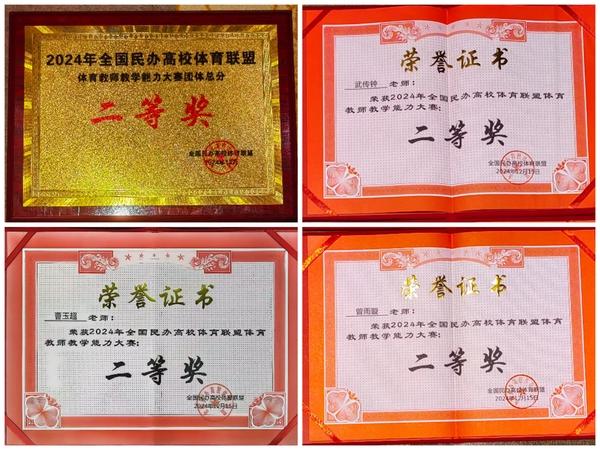 2024年全国民办高校体育联盟
体育教师教学能力大赛团体总分
二等奖
全国民办高校体育联盟
2024年12月
荣誉证书
武传钟 老师:
荣获2024年全国民办高校体育联盟体育
教师教学能力大赛:
二等奖
全国民办高校体育联盟
2024年12月15日
荣誉证书
曹玉超 老师:
荣获2024年全国民办高校体育联盟体育
教师教学能力大赛:
二等奖
全国民办高校体育联盟
2024年12月15日
荣誉证书
曾雨璇 老师:
荣获2024年全国民办高校体育联盟体育
教师教学能力大赛:
二等奖
全国民办高校体育联盟
2024年12月15日